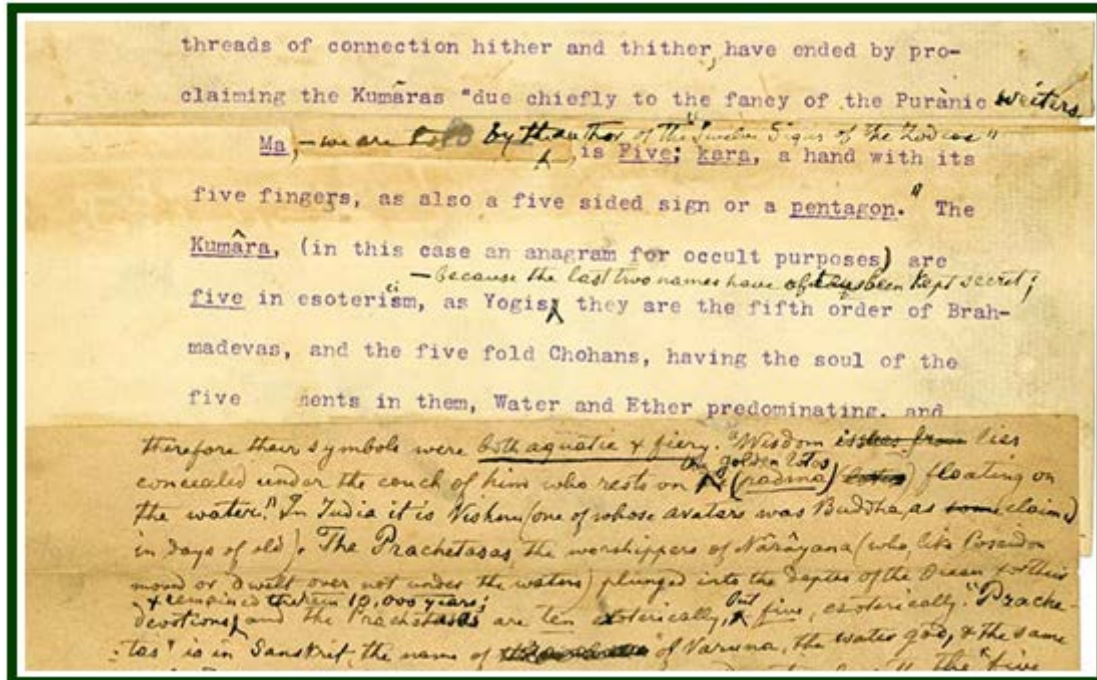 threads of connection hither and thither, have ended by pro-
claiming the Kumâras "due chiefly to the fancy of the Purànic writers
Ma, - we are told by the author of the "Twelve Signs of the Zodiac"
is Five; kara, a hand with its
five fingers, as also a five sided sign or a pentagon." The
Kumâra, (in this case an anagram for occult purposes) are
- because the last two names have always been kept secret;
five in esotericism, as Yogis, they are the fifth order of Brah-
madevas, and the five fold Chohans, having the soul of the
five ments in them, Water and Ether predominating, and
therefore their symbols were both aquatic & fiery. "Wisdom lies
the golden lotos
concealed under the couch of him who rests on (padma) floating on
the water." In India it is Vishnu (one of whose avatars was Buddha, as claimed
in days of old). The Prachetasas, the worshippers of Nârâyana (who, like Poseidon
moved or dwelt over not under the waters) plunged into the depths of the Ocean for their
& remained therein 10,000 years;
devotions, and the Prachetasas are ten exoterically, but five, esoterically. "Prache-
tas" is in Sanskrit, the name of Varuna, the water god, & the same
the "five